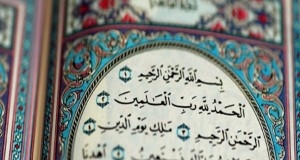 بِسْمِ ٱللَّهِ ٱلرَّحْمَٰنِ ٱلرَّحِيمِ ١
ٱلْحَمْدُ لِلَّهِ رَبِّ ٱلْعَٰلَمِينَ ٢
ٱلرَّحْمَٰنِ ٱلرَّحِيمِ ٣ مَٰلِكِ يَوْمِ ٱلدِّينِ ٤
ٱهْدِنَا